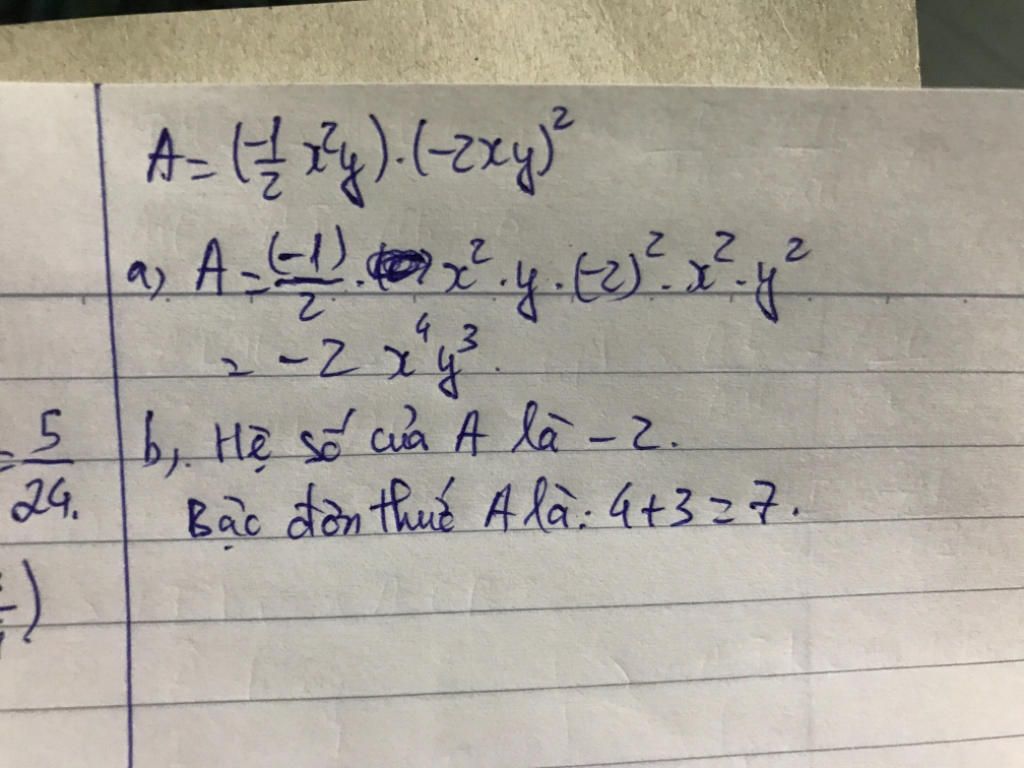 A = (-1/2 x²y).(-2xy)²
a, A = (-1)/2 . x².y.(-2)².x².y²
= -2 x⁴y³.
= 5/24.
b, Hệ số của A là -2.
Bậc đơn thức A là: 4+3=7.